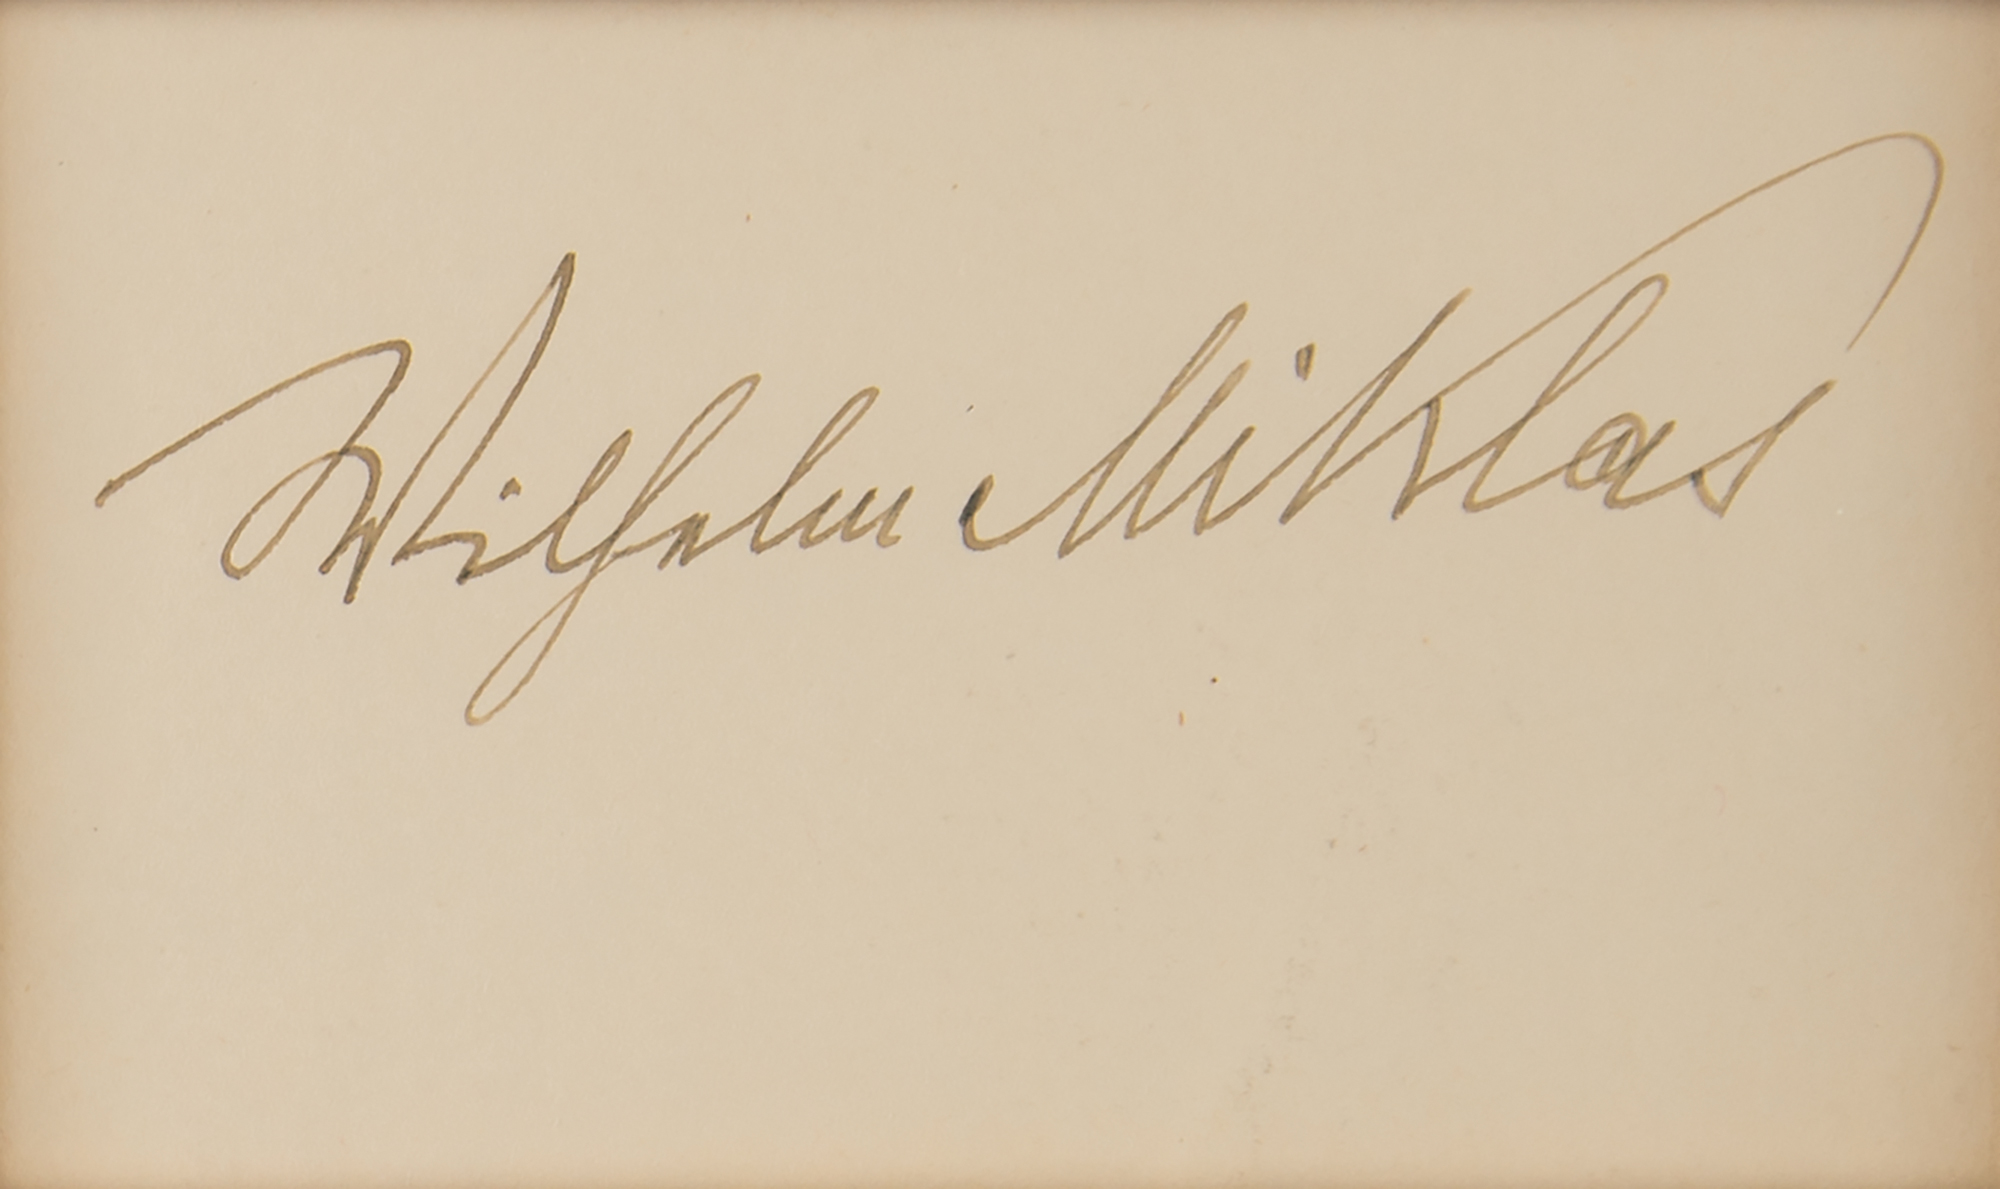 Wilhelm Miklas